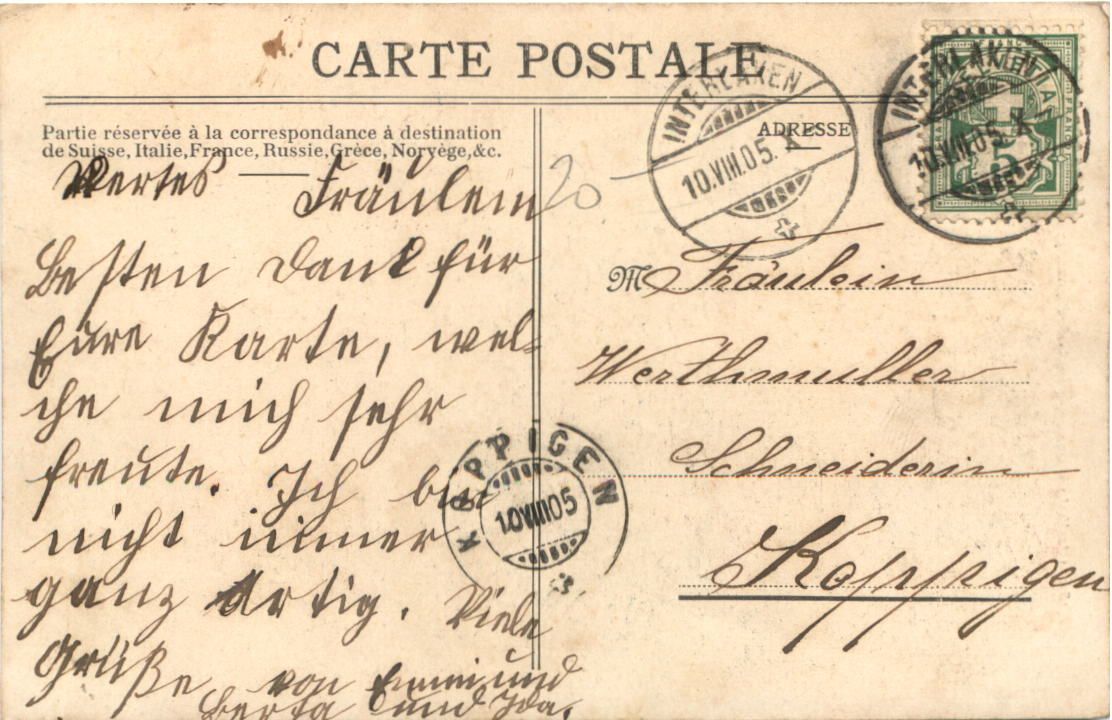 CARTE POSTALE
Partie réservée à la correspondance à destination
de Suisse, Italie, France, Russie, Grèce, Norvège, &c.
ADRESSE
INTERLAKEN
10.VIII.05. X
INTERLAKEN
10.VIII.05. X
FRANCO
5
20
Wertes Fräulein
Besten Dank für
Eure Karte, wel-
che mich sehr
freute. Ich bin
nicht immer
ganz artig. Viele
Grüße von Emmi und
Berta und Ida.
M Fräulein
Werthmuller
Schneiderin
Koppigen
KOPPIGEN
10VIII05